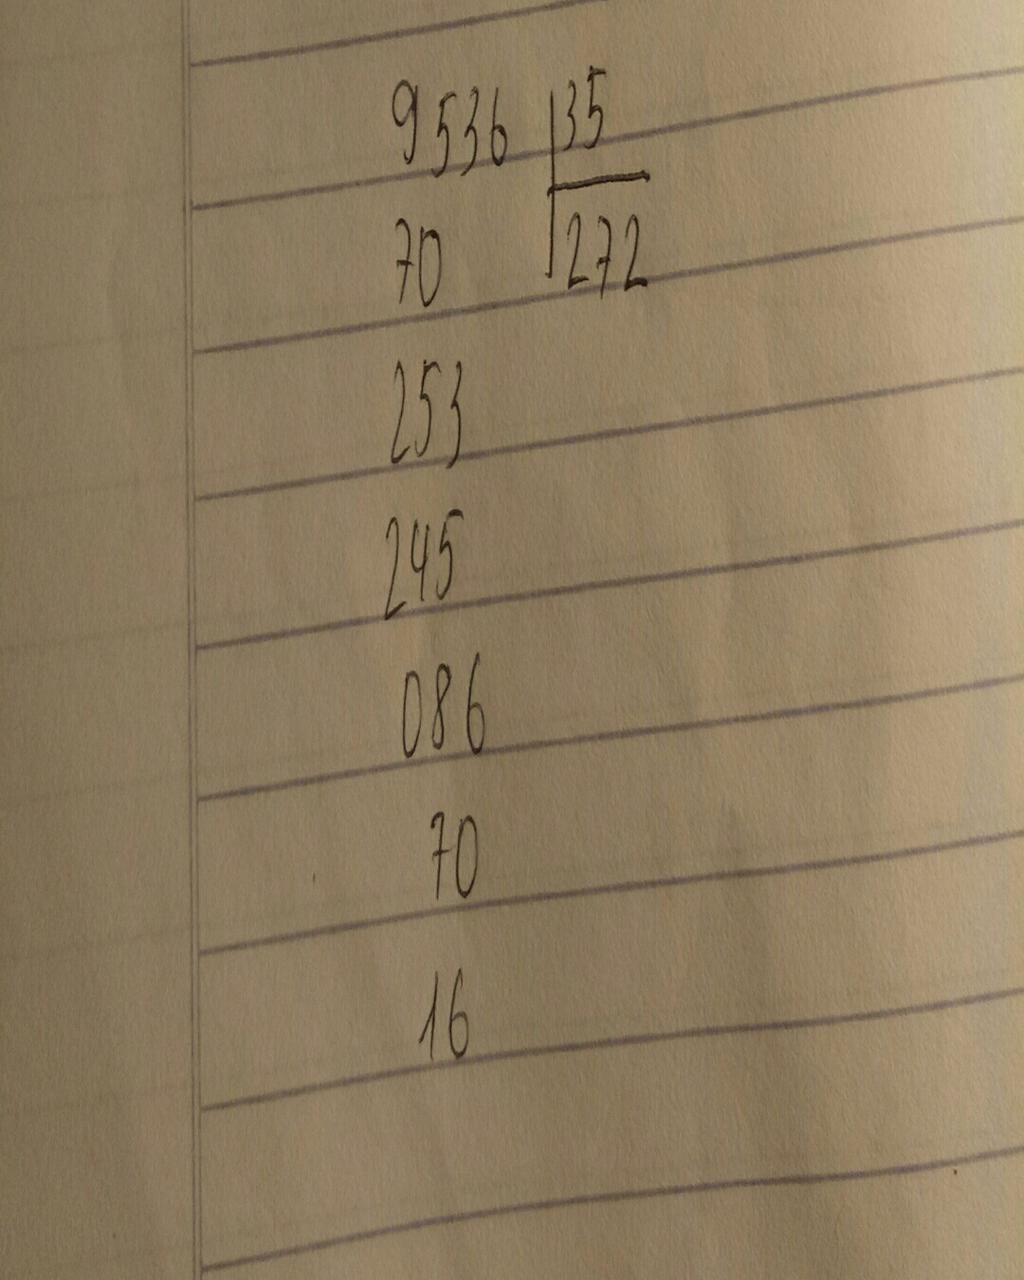 9536 35
70 272
253
245
086
70
16